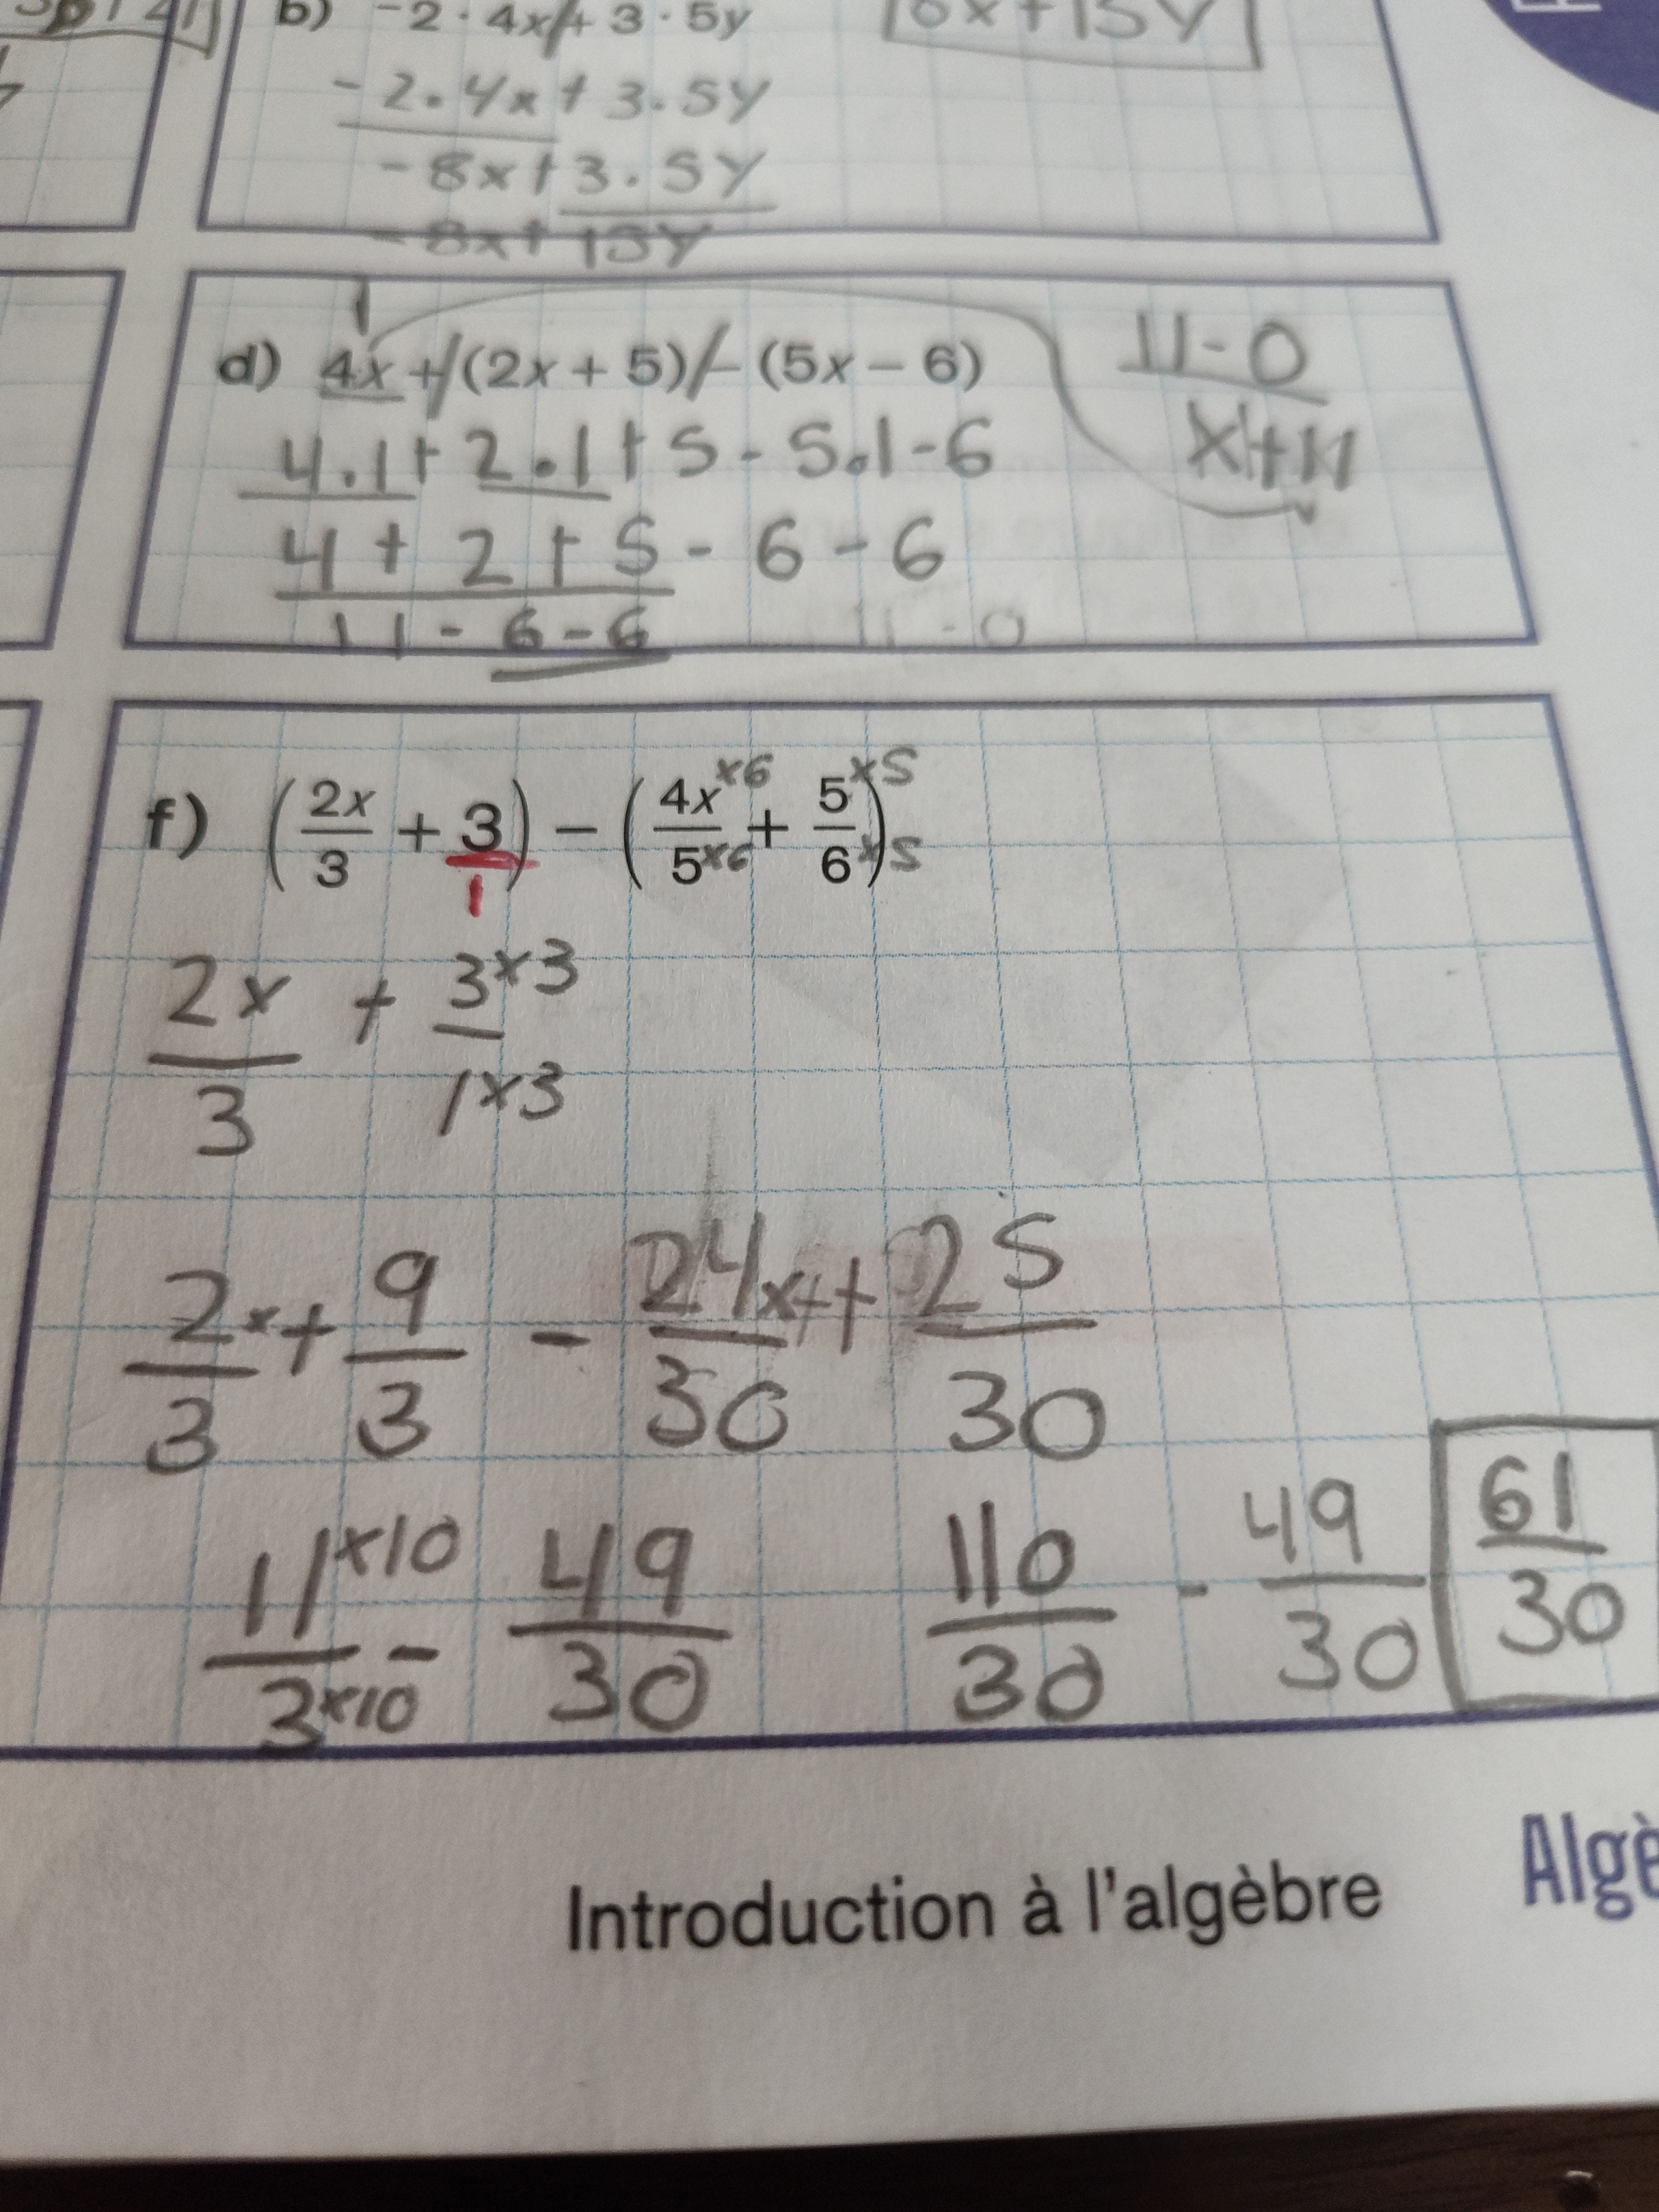 b) -2 · 4x + 3 · 5y
-2.4x + 3.5y
-8x + 3.5y
-8x + 15y
8x + 15y
d) 4x + (2x + 5) - (5x - 6)
1
4.1 + 2.1 + 5 - 5.1 - 6
4 + 2 + 5 - 6 - 6
11 - 6 - 6
11 - 0
11 - 0
x + 11
f) (2x/3 + 3/1) - (4x×6/5×6 + 5×5/6×5)
2x/3 + 3×3/1×3
2x/3 + 9/3 - 24x/30 + 25/30
11×10/3×10 - 49/30 110/30 - 49/30 61/30
Introduction à l'algèbre
Algè